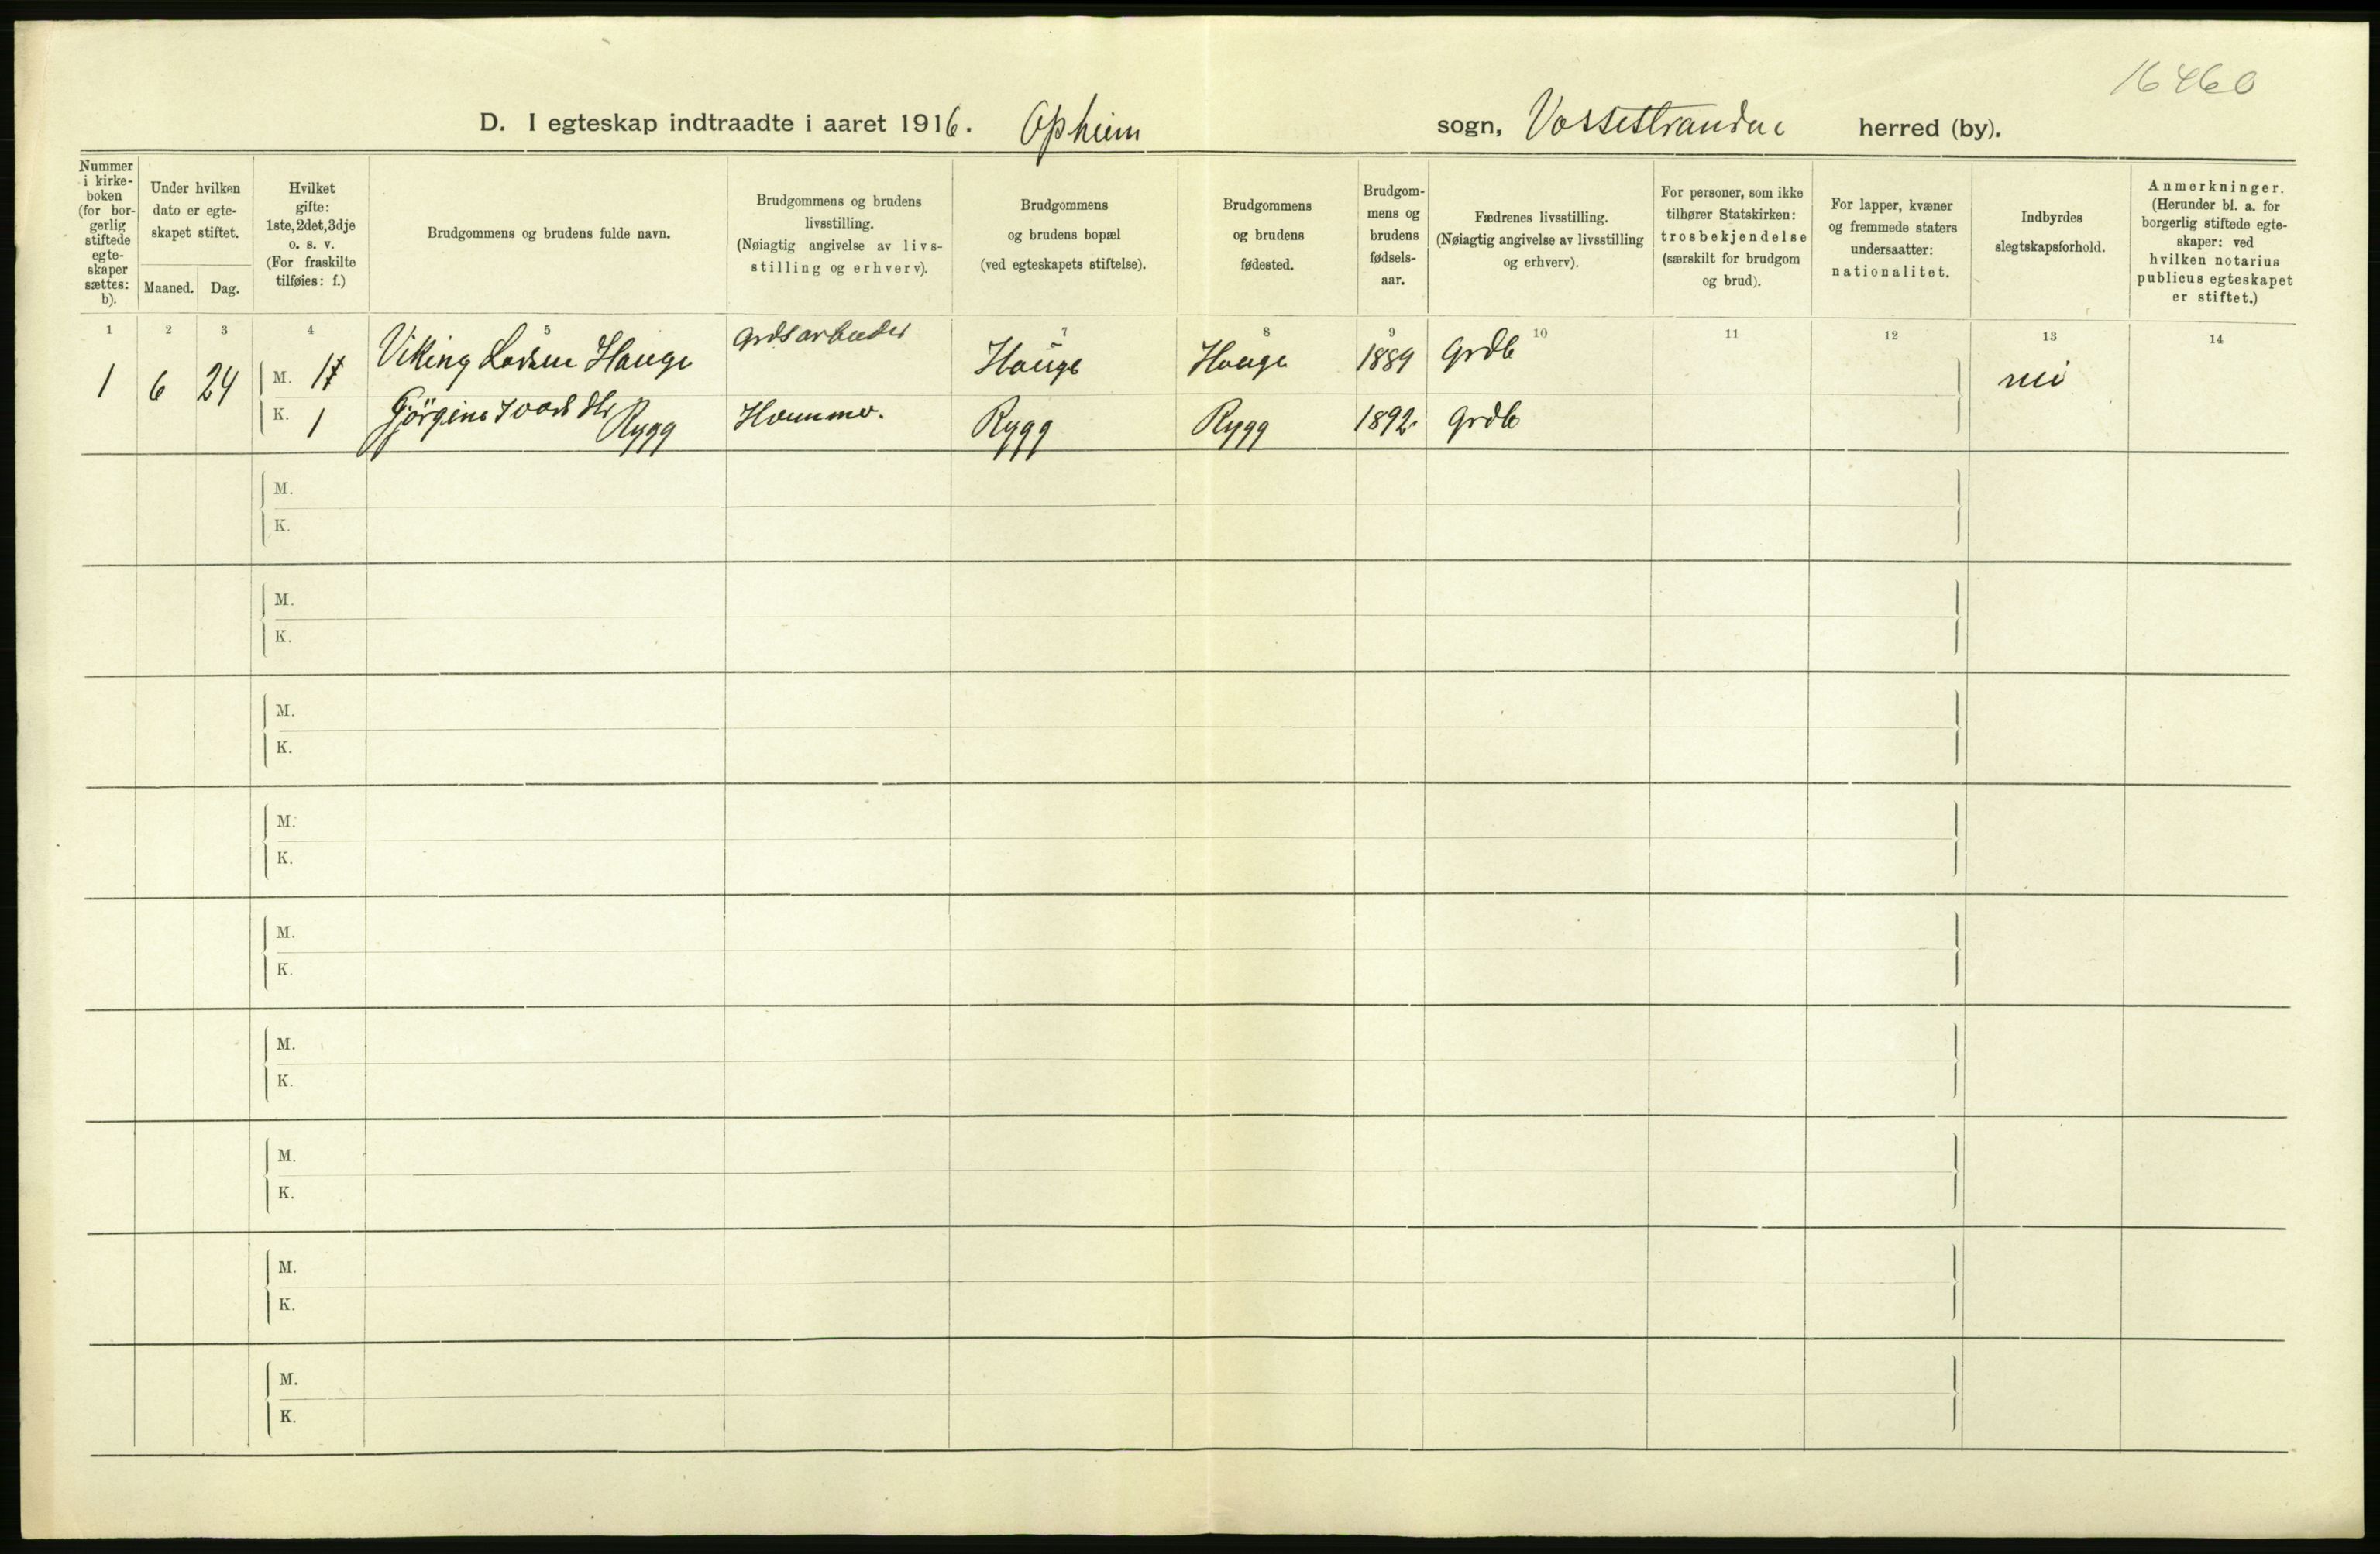 16460
D. I egteskap indtraadte i aaret 1916. Opheim sogn, Vossestranden herred (by).
Nummer
i kirke-
boken
(for bor-
gerlig
stiftede
egte-
skaper
sættes:
b).
Under hvilken
dato er egte-
skapet stiftet.
Maaned. Dag.
Hvilket
gifte:
1ste, 2det, 3dje
o. s. v.
(For fraskilte
tilføies: f.)
Brudgommens og brudens fulde navn.
Brudgommens og brudens
livsstilling.
(Nøiagtig angivelse av livs-
stilling og erhverv).
Brudgommens
og brudens bopæl
(ved egteskapets stiftelse).
Brudgommens
og brudens
fødested.
Brudgom-
mens og
brudens
fødsels-
aar.
Fædrenes livsstilling.
(Nøiagtig angivelse av livsstilling
og erhverv).
For personer, som ikke
tilhører Statskirken:
trosbekjendelse
(særskilt for brudgom
og brud).
For lapper, kvæner
og fremmede staters
undersaatter:
nationalitet.
Indbyrdes
slegtskapsforhold.
Anmerkninger.
(Herunder bl. a. for
borgerlig stiftede egte-
skaper: ved
hvilken notarius
publicus egteskapet
er stiftet.)
1 2 3 4 5 7 8 9 10 11 12 13 14
1 6 24 M. 1 Viking Larsen Hauge Grdsarbeider Hauge Hauge 1889 Grdb nei
K. 1 Görgine Ivarsdtr Rygg Hemme. Rygg Rygg 1892 Grdb
M.
K.
M.
K.
M.
K.
M.
K.
M.
K.
M.
K.
M.
K.
M.
K.
M.
K.